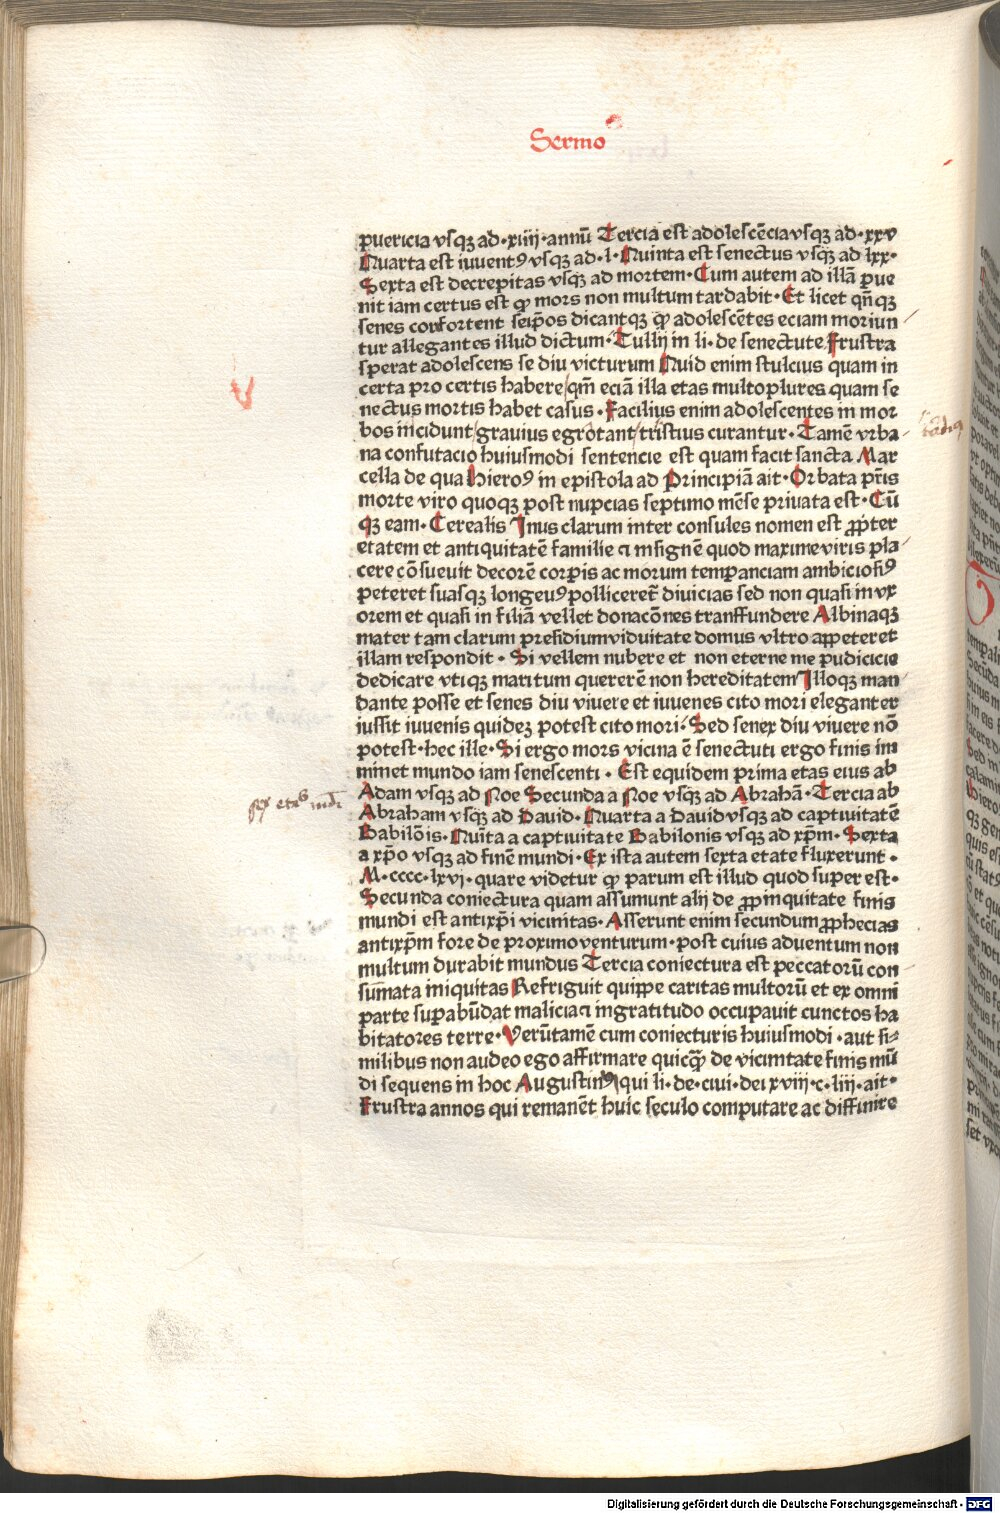 Sermo
puericia vsqꝫ ad·xiiij·annū Tercia est adolescēcia vsqꝫ ad·xxv
Quarta est iuuentꝰ vsqꝫ ad·l·Quinta est senectus vsqꝫ ad lxx·
Sexta est decrepitas vsqꝫ ad mortem·Cum autem ad illā perue
nit iam certus est ꝙ mors non multum tardabit·Et licet qn̄qꝫ
senes confortent seip̄os dicantqꝫ ꝙ adolescētes eciam moriun
tur allegantes illud dictum·Tullij in li·de senectute Frustra
sperat adolescens se diu victurum Quid enim stulcius quam in
certa pro certis habere/qm̄ eciā illa etas multoplures quam se
nectus mortis habet casus·Facilius enim adolescentes in mor
bos incidunt/grauius egrotant/tristius curantur·Tamē vrba
na confutacio huiusmodi sentencie est quam facit sancta Mar
cella de qua Hieroꝰ in epistola ad Principiā ait·Orbata pr̄is
morte viro quoqꝫ post nupcias septimo mēse priuata est·Cū
qꝫ eam·Cerealis Jnus clarum inter consules nomen est ꝓpter
etatem et antiquitatē familie ⁊ insignē quod maxime viris pla
cere cōsueuit decorē corꝑis ac morum temꝑanciam ambiciosiꝰ
peteret suasqꝫ longeuꝰ polliceret᷑ diuicias sed non quasi in vx
orem et quasi in filiā vellet donacōnes transfundere Albinaqꝫ
mater tam clarum presidium viduitate domus vltro appeteret
illam respondit·Si vellem nubere et non eterne me pudicicie
dedicare vtiqꝫ maritum quererē non hereditatem Jlloqꝫ man
dante posse et senes diu viuere et iuuenes cito mori eleganter
iussit iuuenis quideꝫ potest cito mori·Sed senex diu viuere nō
potest·hec ille·Si ergo mors vicina ē senectuti ergo finis im
minet mundo iam senescenti·Est equidem prima etas eius ab
Adam vsqꝫ ad Noe Secunda a Noe vsqꝫ ad Abrahā·Tercia ab
Abraham vsqꝫ ad Dauid·Quarta a Dauid vsqꝫ ad captiuitatē
Babilōis·Quīta a captiuitate Babilonis vsqꝫ ad xp̄m·Sexta
a xp̄o vsqꝫ ad finē mundi·Ex ista autem sexta etate fluxerunt·
M·cccc·lxvi·quare videtur ꝙ parum est illud quod super est·
Secunda coniectura quam assumunt alij de ꝓpinquitate finis
mundi est antixp̄i vicinitas·Asserunt enim secundum ꝓphecias
antixp̄m fore de proximo venturum·post cuius aduentum non
multum durabit mundus Tercia coniectura est peccatorū con
sūmata iniquitas Refriguit quippe caritas multorū et ex omni
parte suꝑabūdat malicia ⁊ ingratitudo occupauit cunctos ha
bitatores terre·Verūtamē cum coniecturis huiusmodi·aut si⸗
milibus non audeo ego affirmare quicq̄ de vicinitate finis mū
di sequens in hoc Augustinū qui li·de·ciui·dei xviij·c·liij·ait·
Frustra annos qui remanēt huic seculo computare ac diffinire
sex etatꝭ mūdi
Digitalisierung gefördert durch die Deutsche Forschungsgemeinschaft - DFG